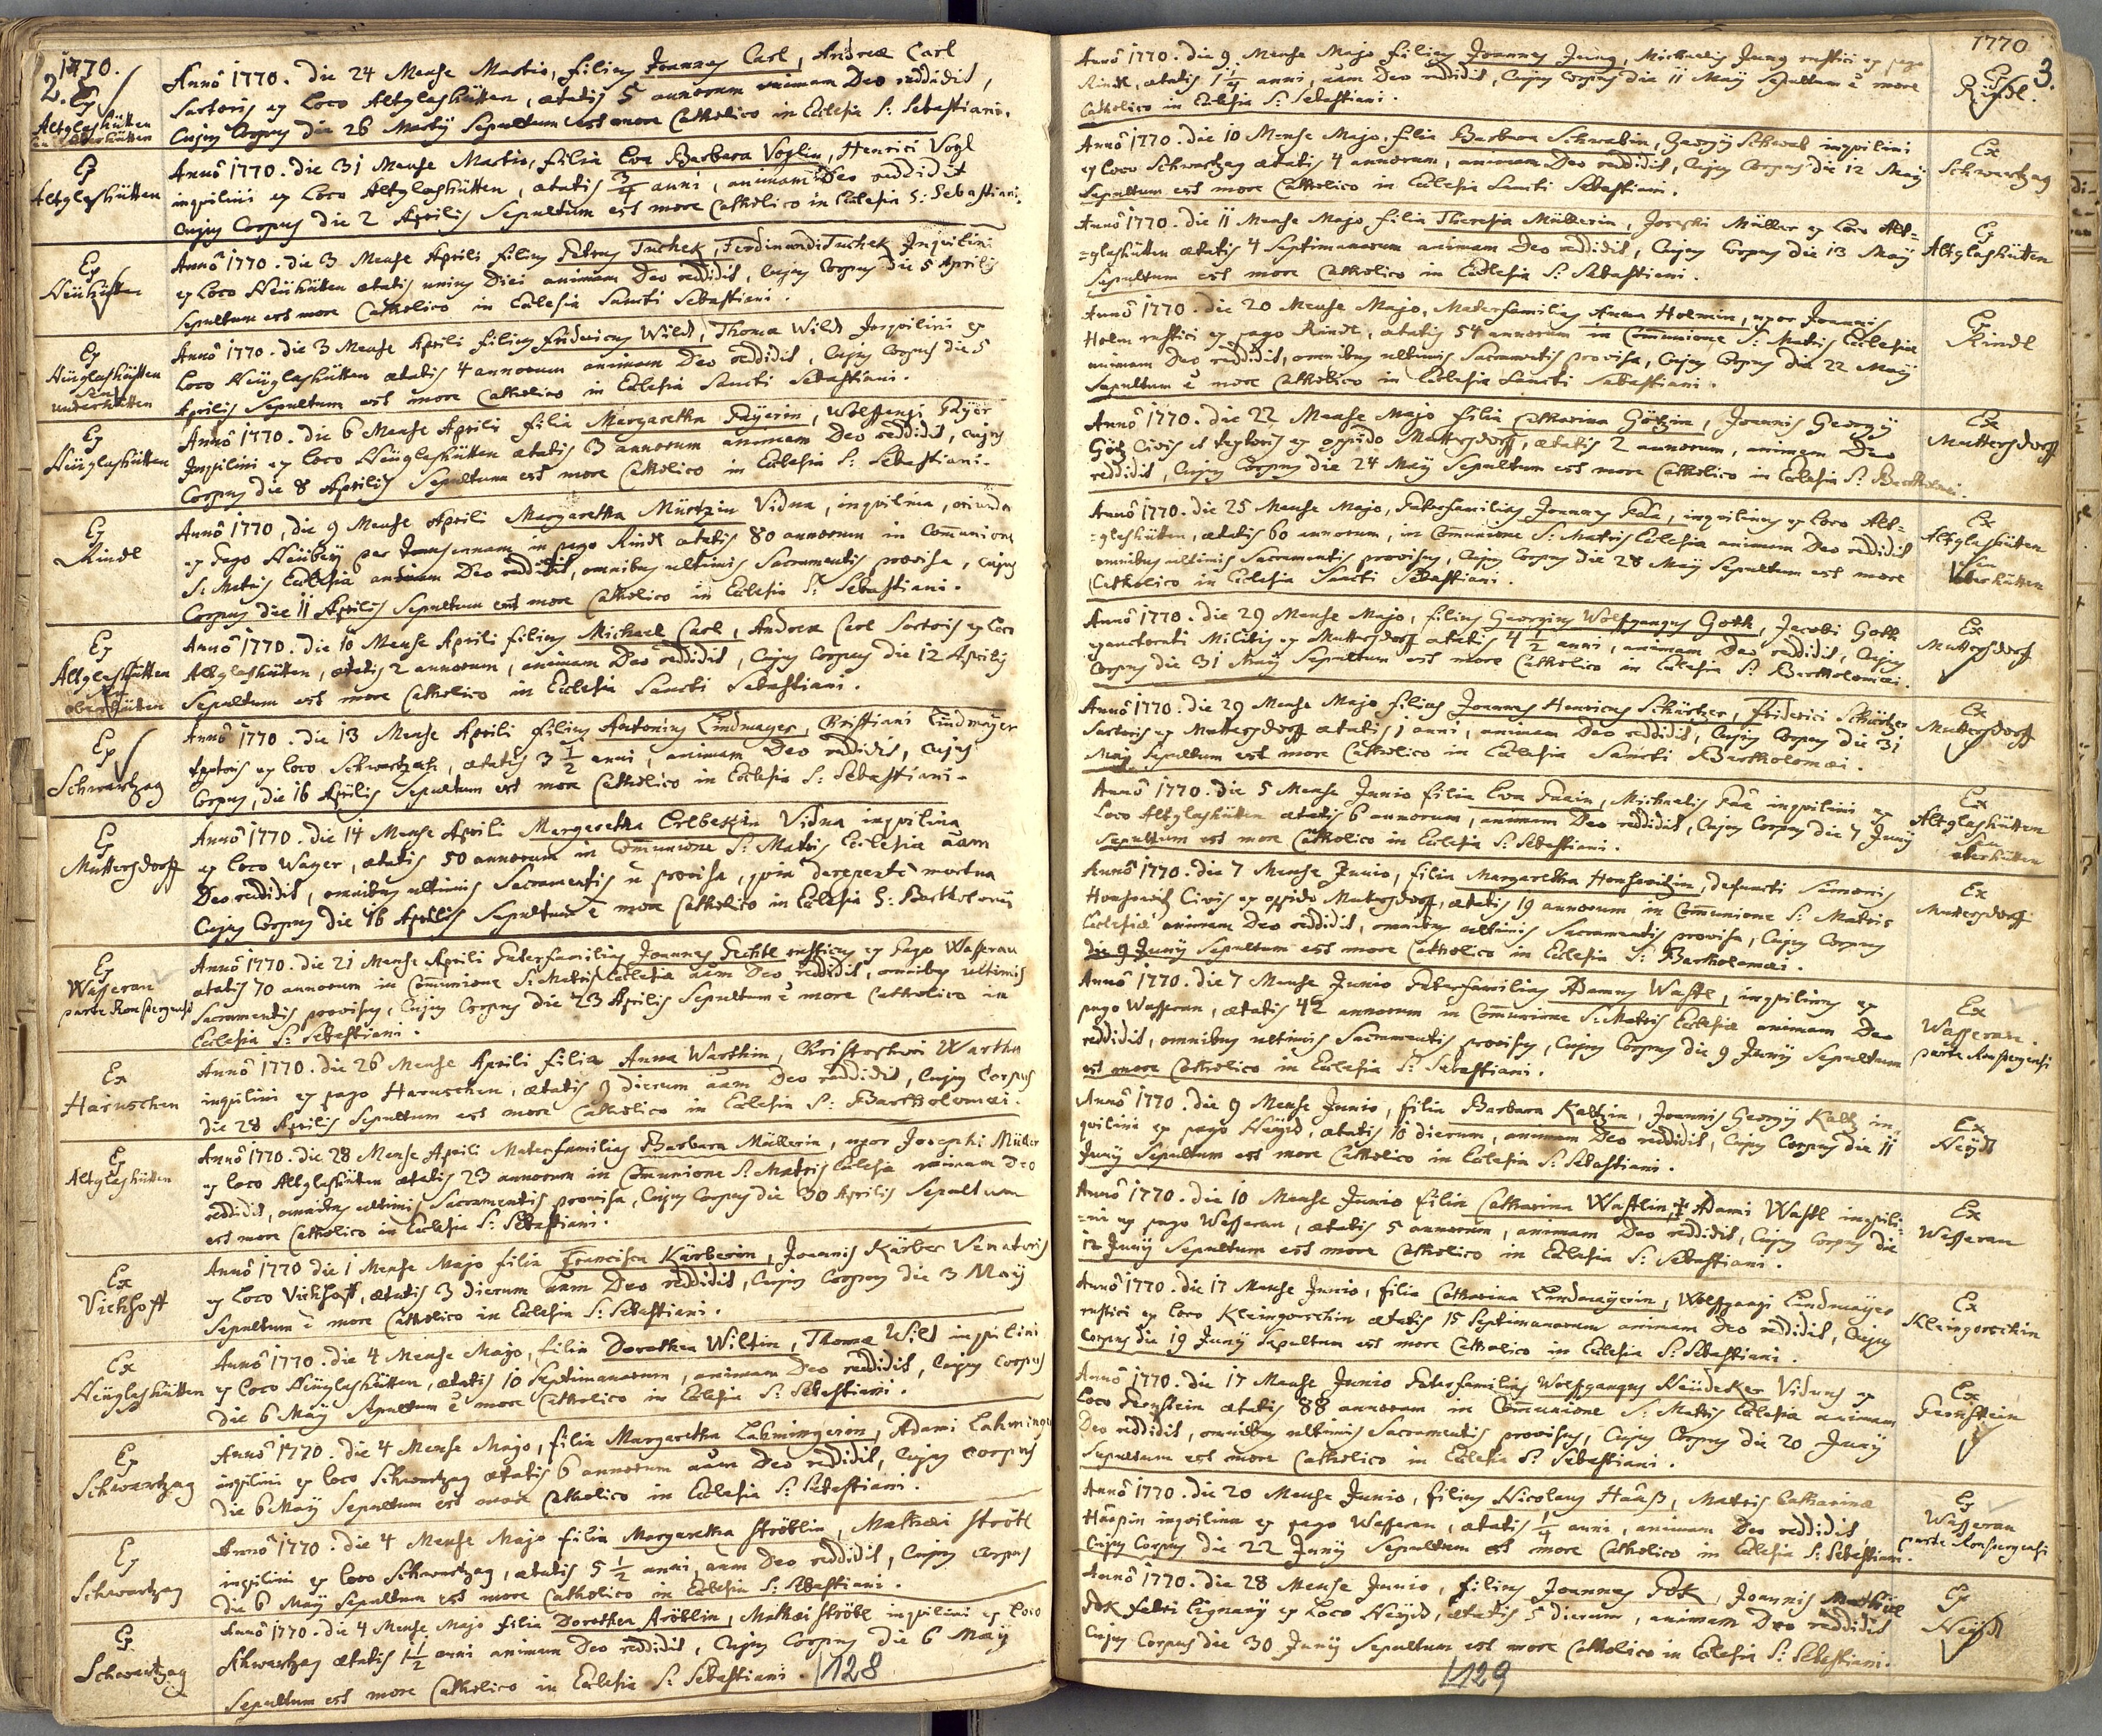 1770.
2.
Ex
Altglashütten
Anno 1770. die 24 Mense Martio, filius Joannes Carl, Andreæ Carl
Sartoris ex Loco Altglashütten, ætatis 5 annorum animam Deo reddidit,
Cujus Corpus die 26 Martij Sepultum est more Catholico in Ecclesia S: Sebastiani.
Ex
Altglashütten
Anno 1770. die 31 Mense Martio, filia Eva Barbara Voglin, Henrici Vogl
inquilini ex Loco Altglashütten, ætatis 3/4 anni, animam Deo reddidit
Cujus Corpus die 2 Aprilis Sepultum est more Catholico in Ecclesia S: Sebastiani.
Ex
Neühütten
Anno 1770. die 3 Mense Aprili filius Petrus Tuchek, Ferdinandi Tuchek Inquilini
ex Loco Neühütten ætatis unius Diei animam Deo reddidit, Cujus Corpus die 5 Aprilis
Sepultum est more Catholico in Ecclesia Sancti Sebastiani.
Ex
Neüglashütten
Underhütten
Anno 1770. die 3 Mense Aprili filius Fridericus Wild, Thoma Wild Inquilini ex
Loco Neüglashütten ætatis 4 annorum animam Deo reddidit, Cujus Corpus die 5
Aprilis Sepultum est more Catholico in Ecclesia Sancti Sebastiani.
Ex
Neüglashütten
Anno 1770. die 6 Mense Aprili filia Margaretha Payerin, Wolffgangi Payer
Inquilini ex Loco Neüglashütten ætatis 3 annorum animam Deo reddidit, cujus
Corpus die 8 Aprilis Sepultum est more Catholico in Ecclesia S: Sebastiani.
Ex
Rindl
Anno 1770, die 9 Mense Aprili Margaretha Mürtzin Vidua, inquilina, oriunda
ex Pago in pago Rindl ætatis 80 annorum in Communione
S: Matris Ecclesiæ animam Deo reddidit, omnibus ultimis Sacramentis provisa, cujus
Corpus die 11 Aprilis Sepultum est more Catholico in Ecclesia S: Sebastiani.
Ex
Altglashütten
seu
oberhütten
Anno 1770. die 10 Mense Aprili filius Michael Carl, Andreæ Carl Sartoris ex Loco
Altglashütten, ætatis 2 annorum, animam Deo reddidit, Cujus Corpus die 12 Aprilis
Sepultum est more Catholico in Ecclesia Sancti Sebastiani.
Ex
Schwartzag
Anno 1770. die 13 Mense Aprili filius Antonius Lindmayer, Christiani Lindmayer
textoris ex loco Schwartzach, ætatis 3 1/2 anni, animam Deo reddidit, cujus
Corpus, die 16 Aprilis Sepultum est more Catholico in Ecclesia S: Sebastiani.
Ex
Muttersdorff
Anno 1770. die 14 Mense Aprili Margaretha Erlbeckin Vidua inquilina
ex loco Wayer, ætatis 50 annorum in Communione S: Matris Ecclesiæ aam
Deo reddidit, omnibus ultimis Sacramentis ñ provisa, quia derepente mortua
Cujus Corpus die 16 Aprilis Sepultum e more Catholico in Ecclesia S: Bartholomæi
Ex
Wasseran
parte Ronspergensi
Anno 1770. die 21 Mense Aprili Paterfamilias Joannes Pechtl rusticus ex Pago Wasseran
ætatis 70 annorum in Communione S: Matris Ecclesiæ aam Deo reddidit, omnibus ultimis
Sacramentis provisus, Cujus Corpus die 23 Aprilis Sepultum e more Catholico in
Ecclesia S: Sebastiani.
Ex
Haruschen
Anno 1770. die 26 Mense Aprili filia Anna Warthin, Christophori Warth
inquilini ex pago Haruschen, ætatis 9 dierum aam Deo reddidit, Cujus Corpus
die 28 Aprilis Sepultum est more Catholico in Ecclesia S: Bartholomæi.
Ex
Altglashütten
Anno 1770. die 28 Mense Aprili Materfamilias Barbara Müllerin, uxor Josephi Müller
ex loco Altglashütten ætatis 23 annorum in Communione S: Matris Ecclesiæ animam Deo
reddidit, omnibus ultimis Sacramentis provisa, Cujus Corpus die 30 Aprilis Sepultum
est more Catholico in Ecclesia S: Sebastiani.
Ex
Vichhoff
Anno 1770 die 1 Mense Majo filia Francisca Kärberin, Joannis Kärber Venatoris
ex Loco Vichhoff, ætatis 3 dierum aam Deo reddidit, Cujus Corpus die 3 Maij
Sepultum e more Catholico in Ecclesia S: Sebastiani.
Ex
Neüglashütten
Anno 1770. die 4 Mense Majo, filia Dorothea Wildin, Thoma Wild inquilini
ex Loco Neüglashütten, ætatis 10 Septimanarum, animam Deo reddidit, Cujus Corpus
die 6 Maij Sepultum e more Catholico in Ecclesia S: Sebastiani.
Ex
Schwartzag
Anno 1770. die 4 Mense Majo, filia Margaretha Lahmingerin, Adami Lahminger
inquilini ex loco Schwartzag ætatis 6 annorum aam Deo reddidit, Cujus Corpus
die 6 Maij Sepultum est more Catholico in Ecclesia S: Sebastiani.
Ex
Schwartzag
Anno 1770. die 4 Mense Majo filia Margaretha Ströblin, Mathæi Ströbl
inquilini ex loco Schwartzag, ætatis 5 1/2 anni, aam Deo reddidit, Cujus Corpus
die 6 Maij Sepultum est more Catholico in Ecclesia S: Sebastiani.
Ex
Schwartzag
Anno 1770. die 4 Mense Majo filia Dorothea Ströblin, Mathæi Ströbl inquilini ex Loco
Schwartzag ætatis 1 1/2 anni animam Deo reddidit, Cujus Corpus die 6 Maij
Sepultum est more Catholico in Ecclesia S: Sebastiani.
128
1770
3.
Anno 1770. die 9 Mense Majo filius Joannes Jung, Michaelis Jung rustici ex pago
Rindl, ætatis 1 1/4 anni, aam Deo reddidit, Cujus Corpus die 11 Maij Sepultum e more
Catholico in Ecclesia S: Sebastiani.
Ex
Rindl.
Anno 1770. die 10 Mense Majo, filia Barbara Schwabin, Georgij Schwab inquilini
ex loco Schwartzag ætatis 4 annorum, animam Deo reddidit, Cujus Corpus die 12 Maij
Sepultum est more Catholico in Ecclesia Sancti Sebastiani.
Ex
Schwartzag
Anno 1770. die 11 Mense Majo, filia Theresia Müllerin, Josephi Müller ex loco Alt=
=glashütten ætatis 4 Septimanarum animam Deo reddidit, Cujus Corpus die 13 Maij
Sepultum est more Catholico in Ecclesia S: Sebastiani.
Ex
Altglashütten
Anno 1770. die 20 Mense Majo, Materfamilias Anna Holmin, uxor Joannis
Holm rustici ex pago Rindl, ætatis 54 annorum in Communione S: Matris Ecclesiæ
animam Deo reddidit, omnibus ultimis Sacramentis provisa, Cujus Corpus die 22 Maij
Sepultum e more Catholico in Ecclesia Sancti Sebastiani.
Ex
Rindl
Anno 1770. die 22 Mense Majo filia Catharina Götzin, Joannis Georgij
Götz Civis et textoris ex oppido Muttersdorff, ætatis 2 annorum, animam Deo
reddidit, Cujus Corpus die 24 Maij Sepultum est more Catholico in Ecclesia S: Bartholomæi.
Ex
Muttersdorff
Anno 1770. die 25 Mense Majo, Paterfamilias Joannes Paa, inquilinus ex loco Alt=
=glashütten, ætatis 60 annorum, in Communione S: Matris Ecclesiæ animam Deo reddidit
omnibus ultimis Sacramentis provisus, Cujus Corpus die 28 Maij Sepultum est more
Catholico in Ecclesia Sancti Sebastiani.
Ex
Altglashütten
seu
oberhütten
Anno 1770. die 29 Mense Majo, filius Georgius Wolffgangus Goth, Jacobi Goth
exauctorati Militis ex Muttersdorff ætatis 4 1/2 anni, animam Deo reddidit, Cujus
Corpus die 31 Maij Sepultum est more Catholico in Ecclesia S: Bartholomæi.
Ex
Muttersdorff
Anno 1770. die 29 Mense Majo filius Joannes Henricus Schürtzer, Friderici Schürtzer
Sartoris ex Muttersdorff ætatis 1 anni, animam Deo reddidit, Cujus Corpus die 31
Maij Sepultum est more Catholico in Ecclesia Sancti Bartholomæi.
Ex
Muttersdorff
Anno 1770. die 5 Mense Junio filia Eva Paain, Michaelis Paa inquilini ex
Loco Altglashütten ætatis 6 annorum, animam Deo reddidit, Cujus Corpus die 7 Junij
Sepultum est more Catholico in Ecclesia S: Sebastiani.
Ex
Altglashütten
seu
oberhütten
Anno 1770. die 7 Mense Junio, filia Margaretha Honsowitzin, defuncti Simonis
Honsowitz Civis ex oppido Muttersdorff, ætatis 19 annorum, in Communione S: Matris
Ecclesiæ animam Deo reddidit, omnibus ultimis Sacramentis provisa, Cujus Corpus
die 9 Junij Sepultum est more Catholico in Ecclesia S: Bartholomæi.
Ex
Muttersdorff
Anno 1770. die 7 Mense Junio Paterfamilias Adamus Wastl, inquilinus ex
pago Wasseran, ætatis 42 annorum in Communione S: Matris Ecclesiæ animam Deo
reddidit, omnibus ultimis Sacramentis provisus, Cujus Corpus die 9 Junij Sepultum
est more Catholico in Ecclesia S: Sebastiani.
Ex
Wasseran.
parte Ronspergensi
Anno 1770. die 9 Mense Junio, filia Barbara Kaltzin, Joannis Georgij Kaltz in=
quilini ex pago Neijd, ætatis 10 dierum, animam Deo reddidit, Cujus Corpus die 11
Junij Sepultum est more Catholico in Ecclesia S: Sebastiani.
Ex
Neijdt
Anno 1770. die 10 Mense Junio filia Catharina Wastlin, ‡ Adami Wastl inquili=
=ni ex pago Wasseran, ætatis 5 annorum, animam Deo reddidit, Cujus Corpus die
12 Junij Sepultum est more Catholico in Ecclesia S: Sebastiani.
Ex
Wasseran
Anno 1770. die 17 Mense Junio, filia Catharina Lindmayerin, Wolffgangi Lindmayer
rustici ex loco Kleingorschin ætatis 15 Septimanarum animam Deo reddidit, Cujus
Corpus die 19 Junij Sepultum est more Catholico in Ecclesia S: Sebastiani.
Ex
Kleingorschin
Anno 1770. die 17 Mense Junio Paterfamilias Wolffgangus Neüdecker Viduus ex
Loco Pernstein ætatis 88 annorum in Communione S: Matris Ecclesiæ animam
Deo reddidit, omnibus ultimis Sacramentis provisus, Cujus Corpus die 20 Junij
Sepultum est more Catholico in Ecclesia S: Sebastiani.
Ex
Pernstein
Anno 1770. die 20 Mense Junio, filius Nicolaus Haaß, Matris Catharinæ
Haaßin inquilinæ ex pago Wasseran, ætatis 1/4 anni, animam Deo reddidit,
Cujus Corpus die 22 Junij Sepultum est more Catholico in Ecclesia S: Sebastiani.
Ex
Wasseran
parte Ronspergensi
Anno 1770. die 28 Mense Junio, filius Joannes Pök, Joannis
Pök fabri lignarij ex Loco Neijd, ætatis 5 dierum, animam Deo reddidit
Cujus Corpus die 30 Junij Sepultum est more Catholico in Ecclesia S: Sebastiani.
Ex
Neijdt
129